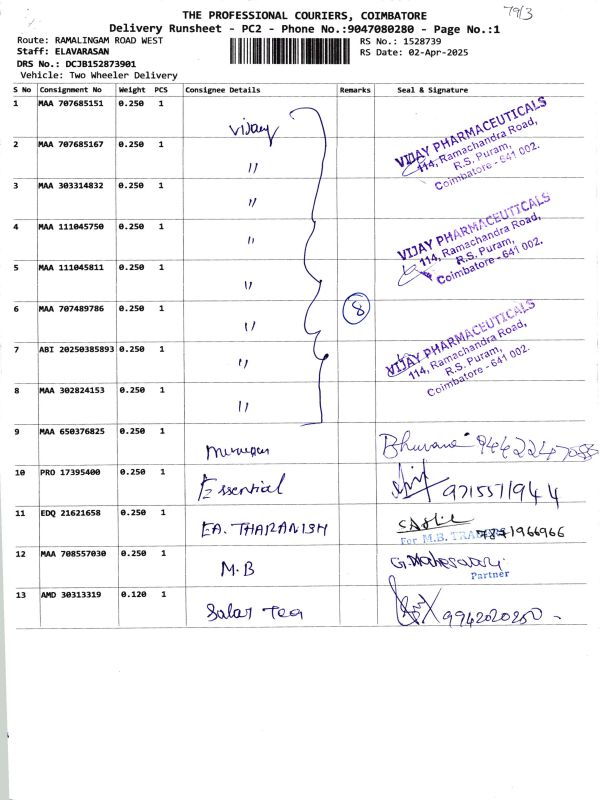 79/3
THE PROFESSIONAL COURIERS, COIMBATORE
Delivery Runsheet - PC2 - Phone No.:9047080280 - Page No.:1
Route: RAMALINGAM ROAD WEST
RS No.: 1528739
Staff: ELAVARASAN
RS Date: 02-Apr-2025
DRS No.: DCJB152873901
Vehicle: Two Wheeler Delivery
S No Consignment No Weight PCS Consignee Details Remarks Seal & Signature
1 MAA 707685151 0.250 1 Vijay
VIJAY PHARMACEUTICALS
114, Ramachandra Road,
R.S. Puram,
Coimbatore - 641 002.
2 MAA 707685167 0.250 1 "
3 MAA 303314832 0.250 1 "
4 MAA 111045750 0.250 1 "
VIJAY PHARMACEUTICALS
114, Ramachandra Road,
R.S. Puram,
Coimbatore - 641 002.
5 MAA 111045811 0.250 1 "
6 MAA 707489786 0.250 1 " 8
VIJAY PHARMACEUTICALS
114, Ramachandra Road,
R.S. Puram,
Coimbatore - 641 002.
7 ABI 20250385893 0.250 1 "
8 MAA 302824153 0.250 1 "
9 MAA 650376825 0.250 1 Murugan Bhuvana
10 PRO 17395400 0.250 1 Essential 9715571944
11 EDQ 21621658 0.250 1 EA. THARANISH
For M.B. TRADERS
12 MAA 708557030 0.250 1 M.B G.Maheswari
Partner
13 AMD 30313319 0.120 1 Salar Tea 9942020250